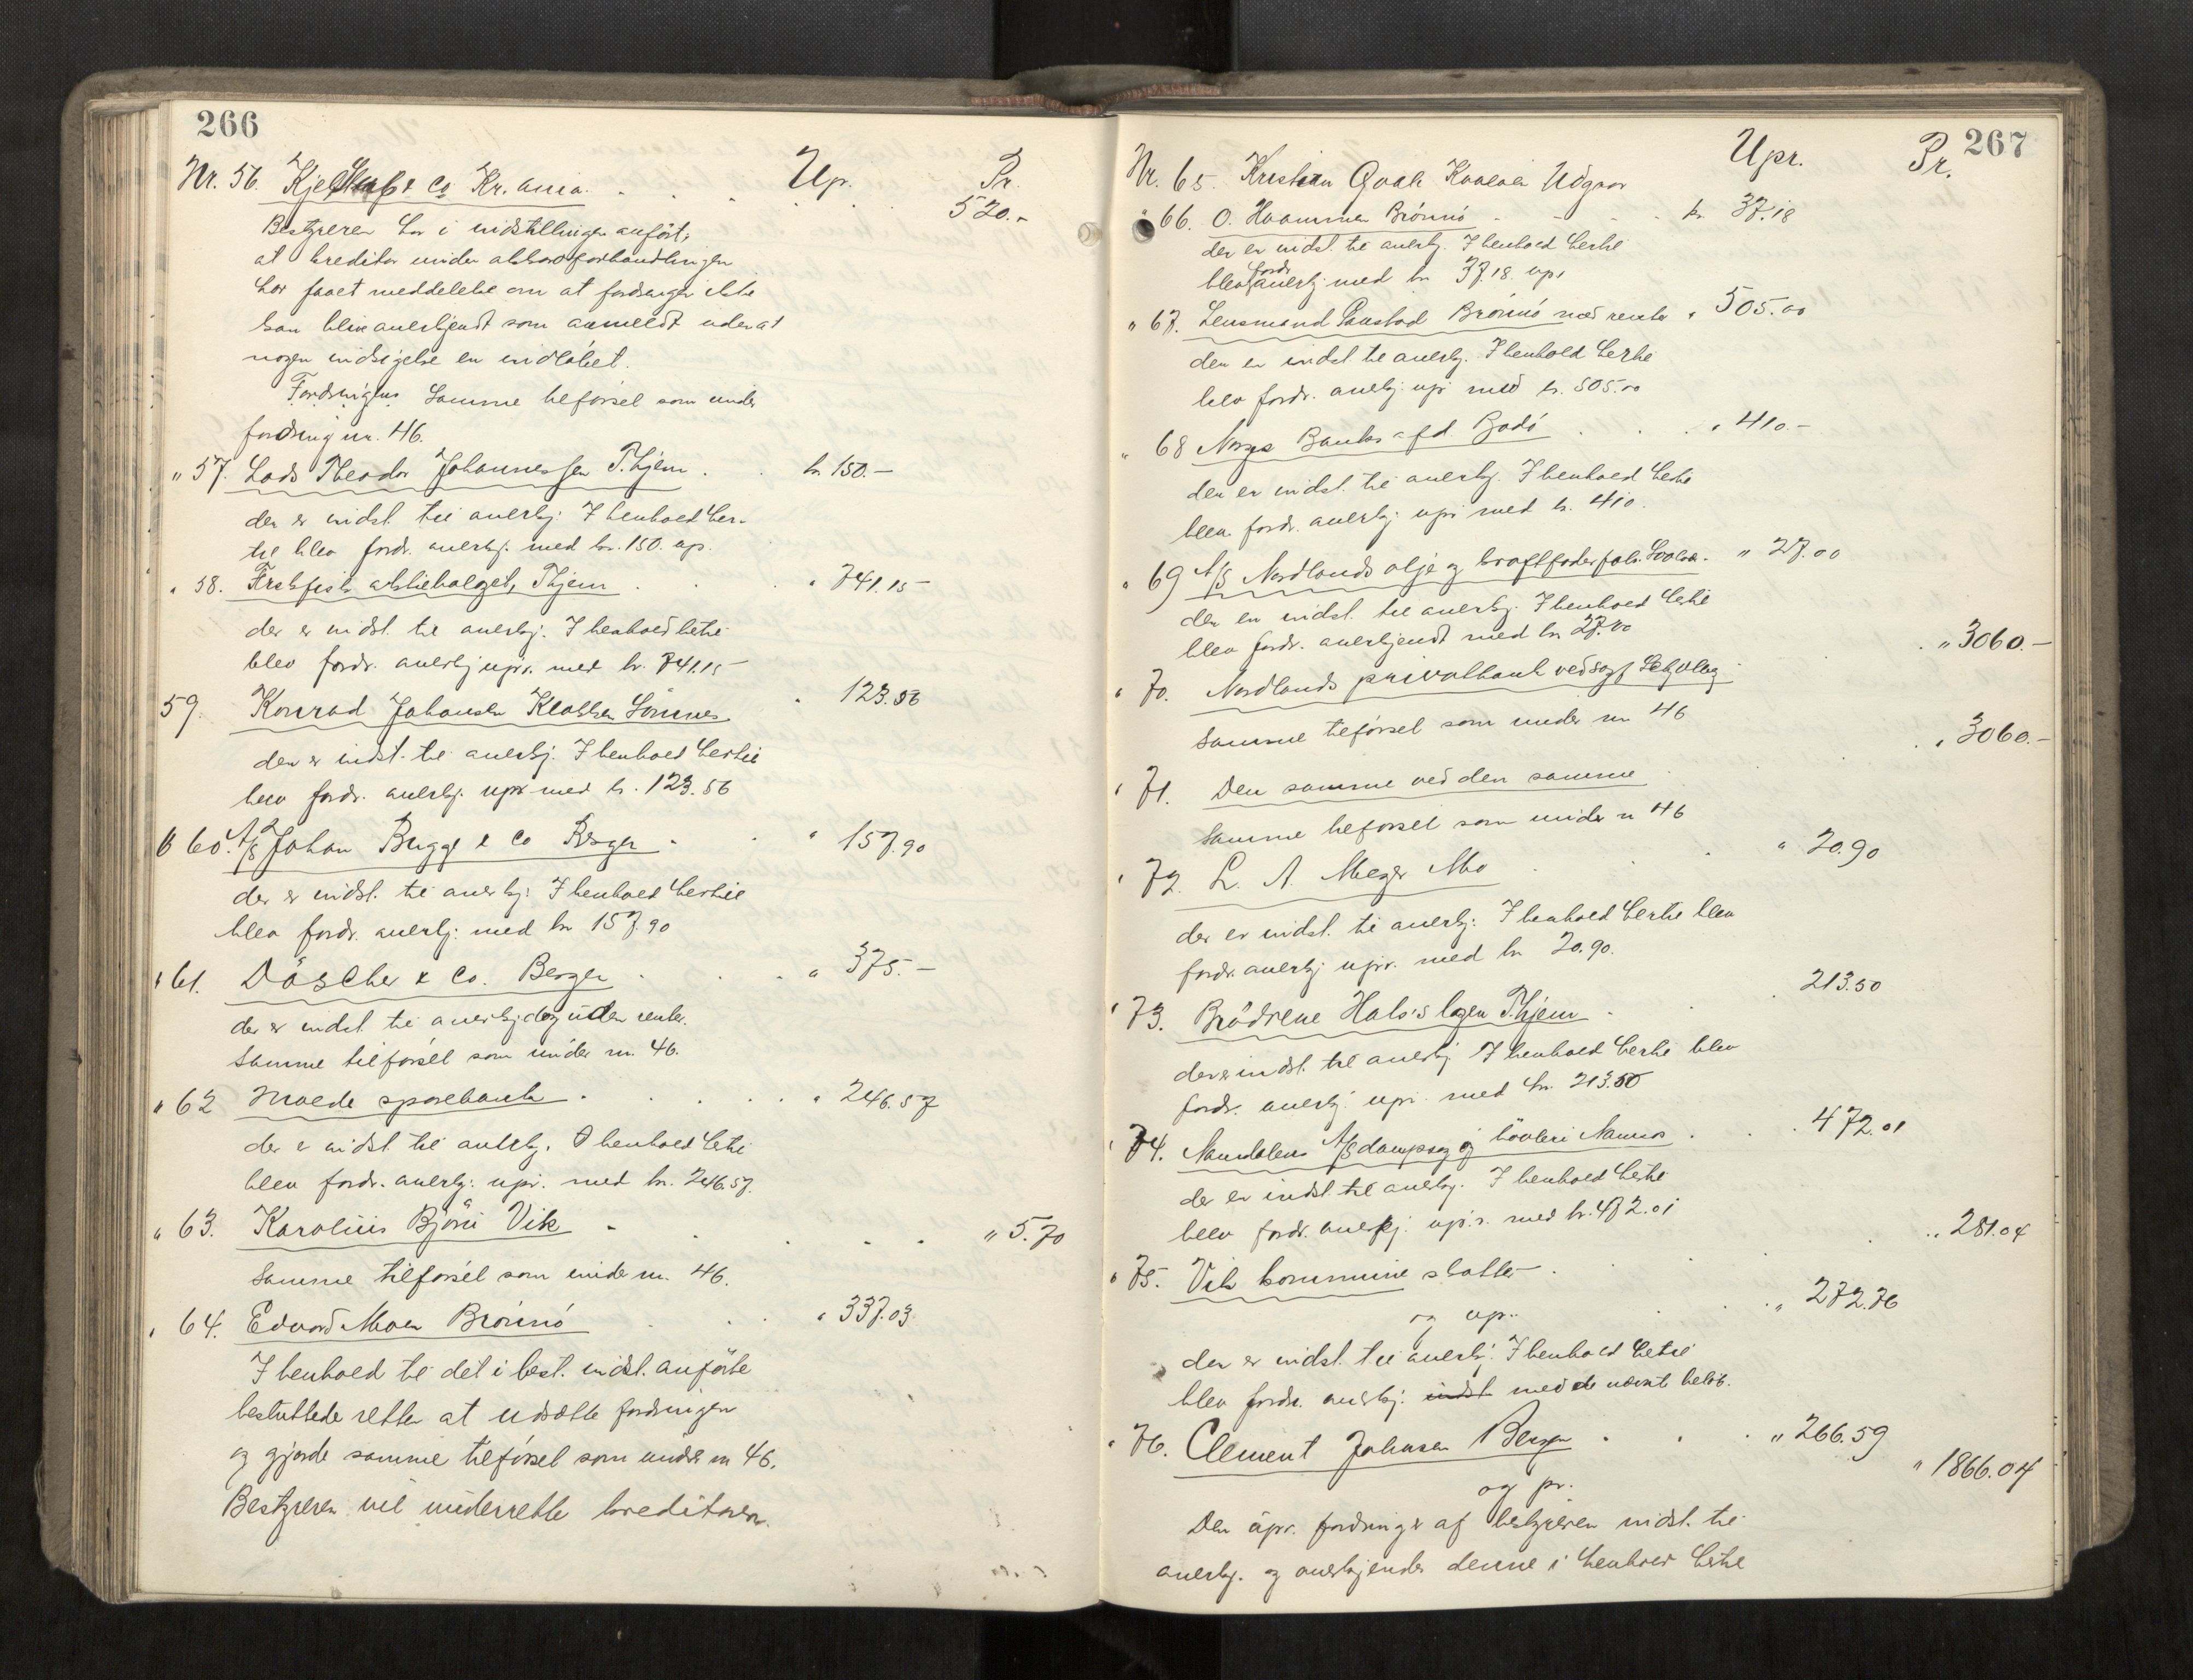 266
Upr. Pr.
Nr. 56. Kjelstrup & Co Kr.ania. 520.-
Bestyreren har i indstillingen anført,
at kreditor under akkordforhandlingen
har faaet meddelelse om at fordringen ikke
kan blive anerkjendt som anmeldt uden at
nogen indsigelse er indløbet.
Fordringens Samme tilførsel som under
fordring nr. 46.
" 57. Lods Theodor Johannessen T.hjem. kr. 150.-
der er indst. til anerkj. I henhold her-
til blev fordr. anerkj. med kr. 150. up.
" 58. Ferskfisk aktieselskabet, T.hjem " 741.15
der er indst. til anerkj. I henhold hertil
blev fordr. anerkj upr. med kr. 741.15
59. Konrad Johansen Sömnes " 123.56
der er indst. til anerkj. I henhold hertil
blev fordr. anerkj. upr med kr. 123.56
" 60. A/S Johan Bugge & Co Bergen " 157.90
der er indst. til anerkj. I henhold hertil
blev fordr. anerkj. med kr 157.90
" 61. Döscher & Co. Bergen " 375.-
der er indst til anerkj dog uden renter.
Samme tilførsel som under nr. 46.
" 62 sparebank " 246.57
der er indst til anerkj. I henhold hertil
blev fordr. anerkj. upr. med kr. 246.57.
" 63. Karolius Björu Vik " 5.70
Samme tilførsel som under nr. 46.
" 64. Edvard Moen Brönnö " 337.03
I henhold til det i best. indst. anførte
besluttede retten at udsætte fordringen
og gjorde samme tilførsel som under nr 46.
Bestyreren vil underrette kreditoren.
267
Upr. Pr.
Nr. 65. Kristian Udgaar
" 66. O. Haammer Brönnö kr 37.18
der er indst. til anerkj. I henhold hertil
blev fordr anerkj. med kr 37.18. upr
" 67. Lensmand Brönnö med renter " 505.00
der er indst til anerkj. I henhold hertil
blev fordr. anerkj upr med kr. 505.00
" 68 Norges Banks afd. Bodö " 410.-
der er indst. til anerkj. I henhold hertil
blev fordr. anerkj upr med kr. 410.
" 69 A/S Nordlands olje og kraftfoderfabr. Svolvær. " 27.00
der er indst. til anerkj. I henhold hertil
blev fordr. anerkjendt med kr 27.00
" 70. Nordlands privatbank ved sagf " 3060.-
Samme tilførsel som under nr 46
" 71. Den samme ved den samme " 3060.-
Samme tilførsel som under nr 46
" 72. L. A. Meyer Mo " 20.90
der er indst. til anerkj. I henhold hertil blev
fordr. anerkj upr. med kr 20.90.
" 73. Brödrene Hals's T.hjem 213.50
der er indst. til anerkj I henhold hertil blev
fordr. anerkj. upr. med kr. 213.50
" 74. Namdalens A/S dampsag og høvleri Namsos 472.01
der er indst. til anerkj. I henhold hertil
blev fordr. anerkj. upr. med kr. 472.01
" 75. Vik kommune skatter " 281.04
og upr. " 272.76
der er indst. til anerkj. I henhold hertil
blev fordr. anerkj. indst med de nævnte beløb.
" 76. Clement Johnsen Bergen " 266.59
og pr. " 1866.04
Den upr. fordring er af bestyreren indst. til
anerkj. og anerkjendes denne i henhold hertil